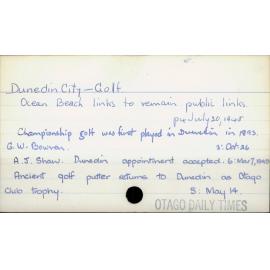 Dunedin City - Golf
Ocean Beach links to remain public links.
p4 July 20, 1945
Championship golf was first played in Dunedin in 1893.
G.W. Bowran. 2: Oct 26
A.J. Shaw. Dunedin appointment accepted. 6: Mar 7, 1949
Ancient golf putter returns to Dunedin as Otago
Club trophy. 5: May 14.
OTAGO DAILY TIMES